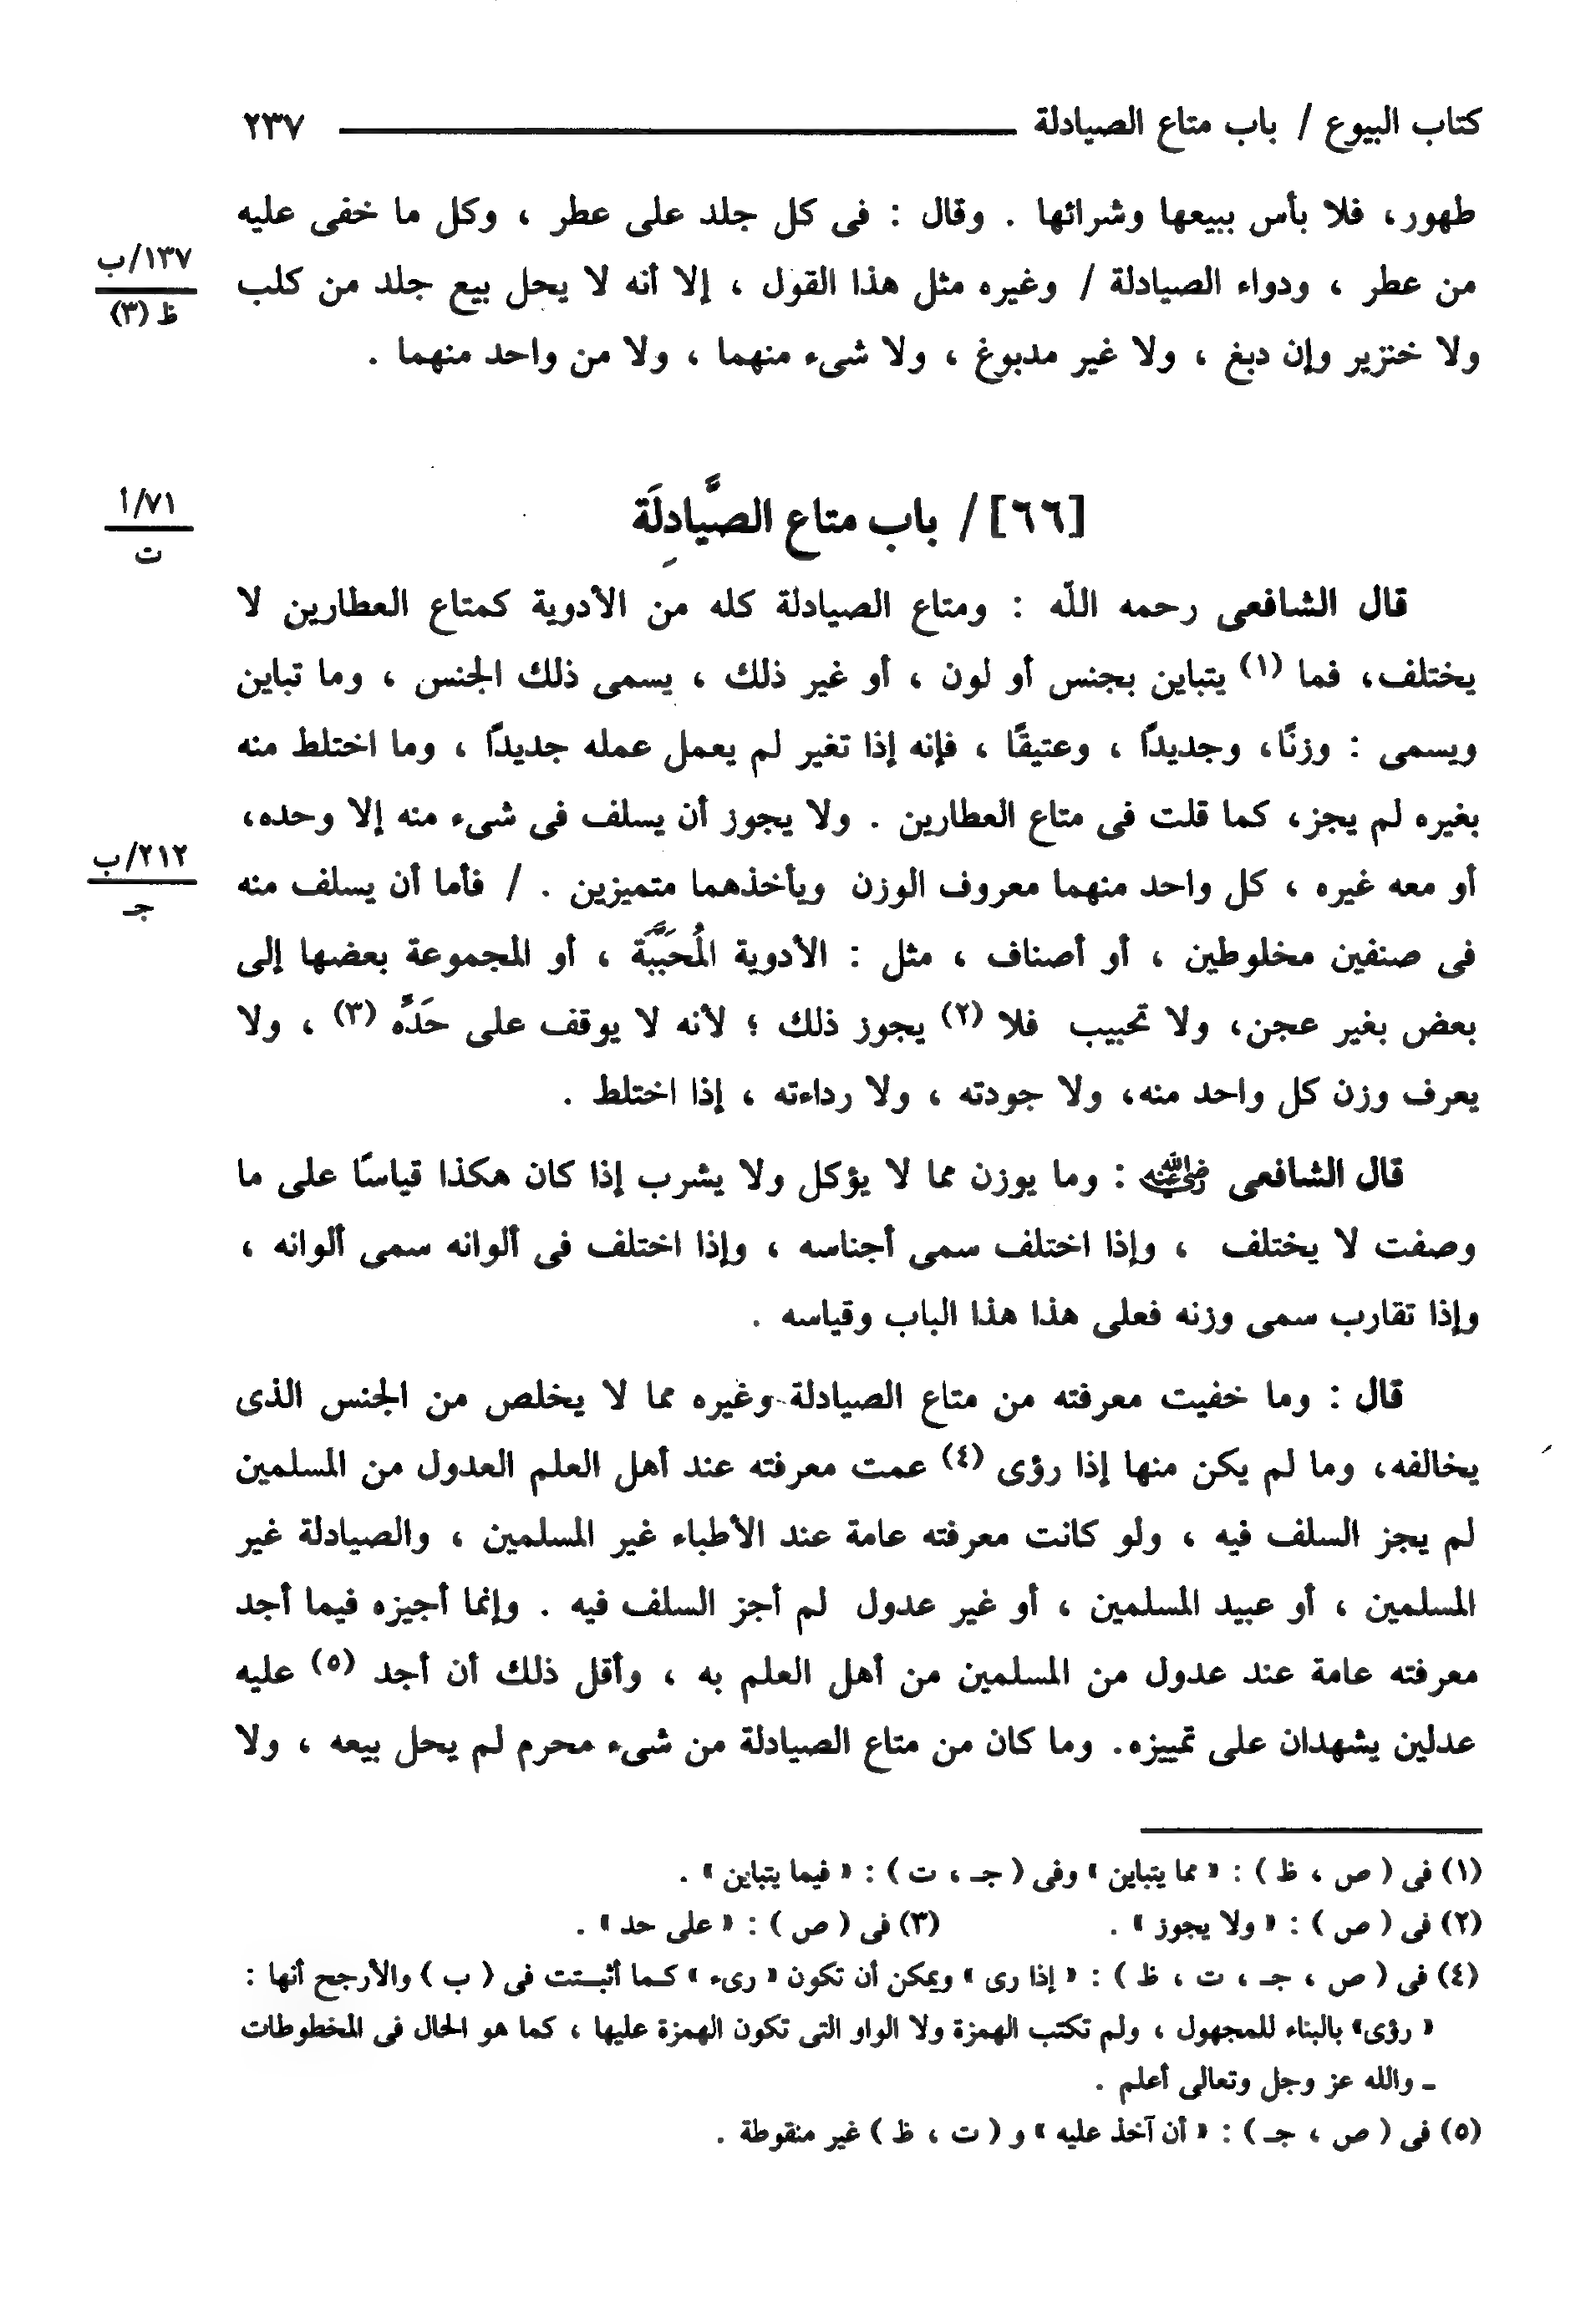 كتاب البيوع / باب متاع الصيادلة ٢٣٧
طهور، فلا بأس ببيعها وشرائها . وقال : فى كل جلد على عطر ، وكل ما خفى عليه
من عطر ، ودواء الصيادلة / وغيره مثل هذا القول ، إلا أنه لا يحل بيع جلد من كلب
١٣٧/ب
ظ (٣)
ولا خنزير وإن دبغ ، ولا غير مدبوغ ، ولا شىء منهما ، ولا من واحد منهما .
[٦٦] / باب متاع الصَّيادِلَة
٧١/أ
ت
قال الشافعى رحمه اللّه : ومتاع الصيادلة كله من الأدوية كمتاع العطارين لا
يختلف، فما (١) يتباين بجنس أو لون ، أو غير ذلك ، يسمى ذلك الجنس ، وما تباين
ويسمى : وزنًا، وجديدًا ، وعتيقًا ، فإنه إذا تغير لم يعمل عمله جديدًا ، وما اختلط منه
بغيره لم يجز، كما قلت فى متاع العطارين . ولا يجوز أن يسلف فى شىء منه إلا وحده،
أو معه غيره ، كل واحد منهما معروف الوزن ويأخذهما متميزين . / فأما أن يسلف منه
٢١٢/ب
جـ
فى صنفين مخلوطين ، أو أصناف ، مثل : الأدوية المُحَبَّبَة ، أو المجموعة بعضها إلى
بعض بغير عجن، ولا تحبيب فلا (٢) يجوز ذلك ؛ لأنه لا يوقف على حَدَّه (٣) ، ولا
يعرف وزن كل واحد منه، ولا جودته ، ولا رداءته ، إذا اختلط .
قال الشافعى رضي الله عنه : وما يوزن مما لا يؤكل ولا يشرب إذا كان هكذا قياسًا على ما
وصفت لا يختلف ، وإذا اختلف سمى أجناسه ، وإذا اختلف فى ألوانه سمى ألوانه ،
وإذا تقارب سمى وزنه فعلى هذا هذا الباب وقياسه .
قال : وما خفيت معرفته من متاع الصيادلة وغيره مما لا يخلص من الجنس الذى
يخالفه، وما لم يكن منها إذا رؤى (٤) عمت معرفته عند أهل العلم العدول من المسلمين
لم يجز السلف فيه ، ولو كانت معرفته عامة عند الأطباء غير المسلمين ، والصيادلة غير
المسلمين ، أو عبيد المسلمين ، أو غير عدول لم أجز السلف فيه . وإنما أجيزه فيما أجد
معرفته عامة عند عدول من المسلمين من أهل العلم به ، وأقل ذلك أن أجد (٥) عليه
عدلين يشهدان على تمييزه. وما كان من متاع الصيادلة من شىء محرم لم يحل بيعه ، ولا
(١) فى ( ص ، ظ ) : « مما يتباين » وفى ( جـ ، ت ) : « فيما يتباين » .
(٢) فى ( ص ) : « ولا يجوز » . (٣) فى ( ص ) : « على حد » .
(٤) فى ( ص ، جـ ، ت ، ظ ) : « إذا رى » ويمكن أن تكون « رىء » كـما أثبـتت فى ( ب ) والأرجح أنها :
« رؤى» بالبناء للمجهول ، ولم تكتب الهمزة ولا الواو التى تكون الهمزة عليها ، كما هو الحال فى المخطوطات
ـ والله عز وجل وتعالى أعلم .
(٥) فى ( ص ، جـ ) : « أن آخذ عليه » و ( ت ، ظ ) غير منقوطة .